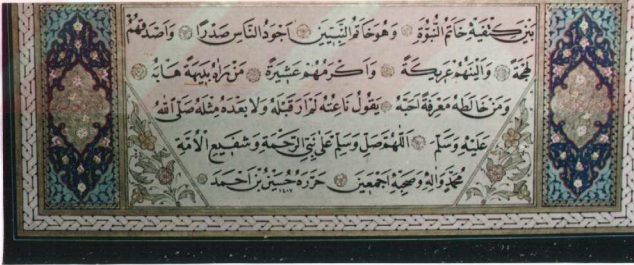 بَيْنَ كَتِفَيْهِ خَاتَمُ النُّبُوَّةِ وَهُوَ خَاتَمُ النَّبِيِّينَ أَجْوَدُ النَّاسِ صَدْرًا وَأَصْدَقُهُمْ
لَهْجَةً وَأَلْيَنُهُمْ عَرِيكَةً وَأَكْرَمُهُمْ عَشِيرَةً مَنْ رَآهُ بَدِيهَةً هَابَهُ
وَمَنْ خَالَطَهُ مَعْرِفَةً أَحَبَّهُ يَقُولُ نَاعِتُهُ لَمْ أَرَ قَبْلَهُ وَلَا بَعْدَهُ مِثْلَهُ صَلَّى اللهُ
عَلَيْهِ وَسَلَّمَ اَللّٰهُمَّ صَلِّ وَسَلِّمْ عَلَى نَبِيِّ الرَّحْمَةِ وَشَفِيعِ الْأُمَّةِ
مُحَمَّدٍ وَآلِهِ وَصَحْبِهِ أَجْمَعِينَ حَرَّرَهُ حُسَيْنُ بْنُ أَحْمَدَ